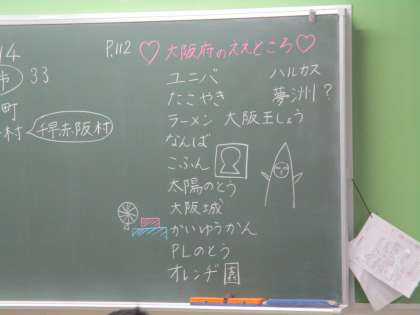 14
市 33
町
村 千早赤阪村
P.112 ♡大阪府のええところ♡
ユニバ
たこやき
ラーメン 大阪王しょう
なんば
こふん
太陽のとう
大阪城
かいゆうかん
PLのとう
オレンヂ園
ハルカス
夢洲?